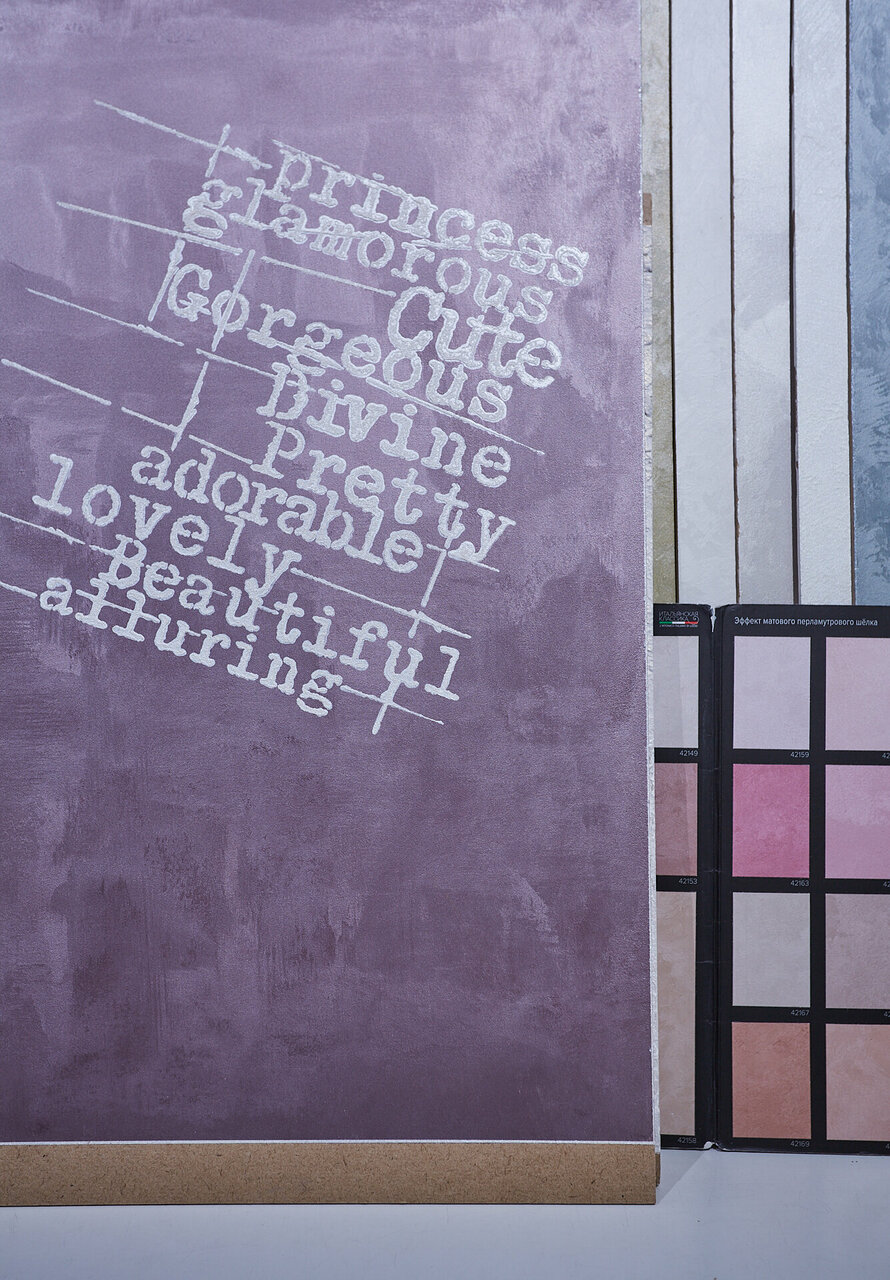 princess
glamorous
Cute
Gorgeous
Divine
Pretty
adorable
lovely
Beautiful
alluring
ИТАЛЬЯНСКАЯ
КЛАССИКА
Эффект матового перламутрового шёлка
42149
42159
42153
42163
42167
42158
42169